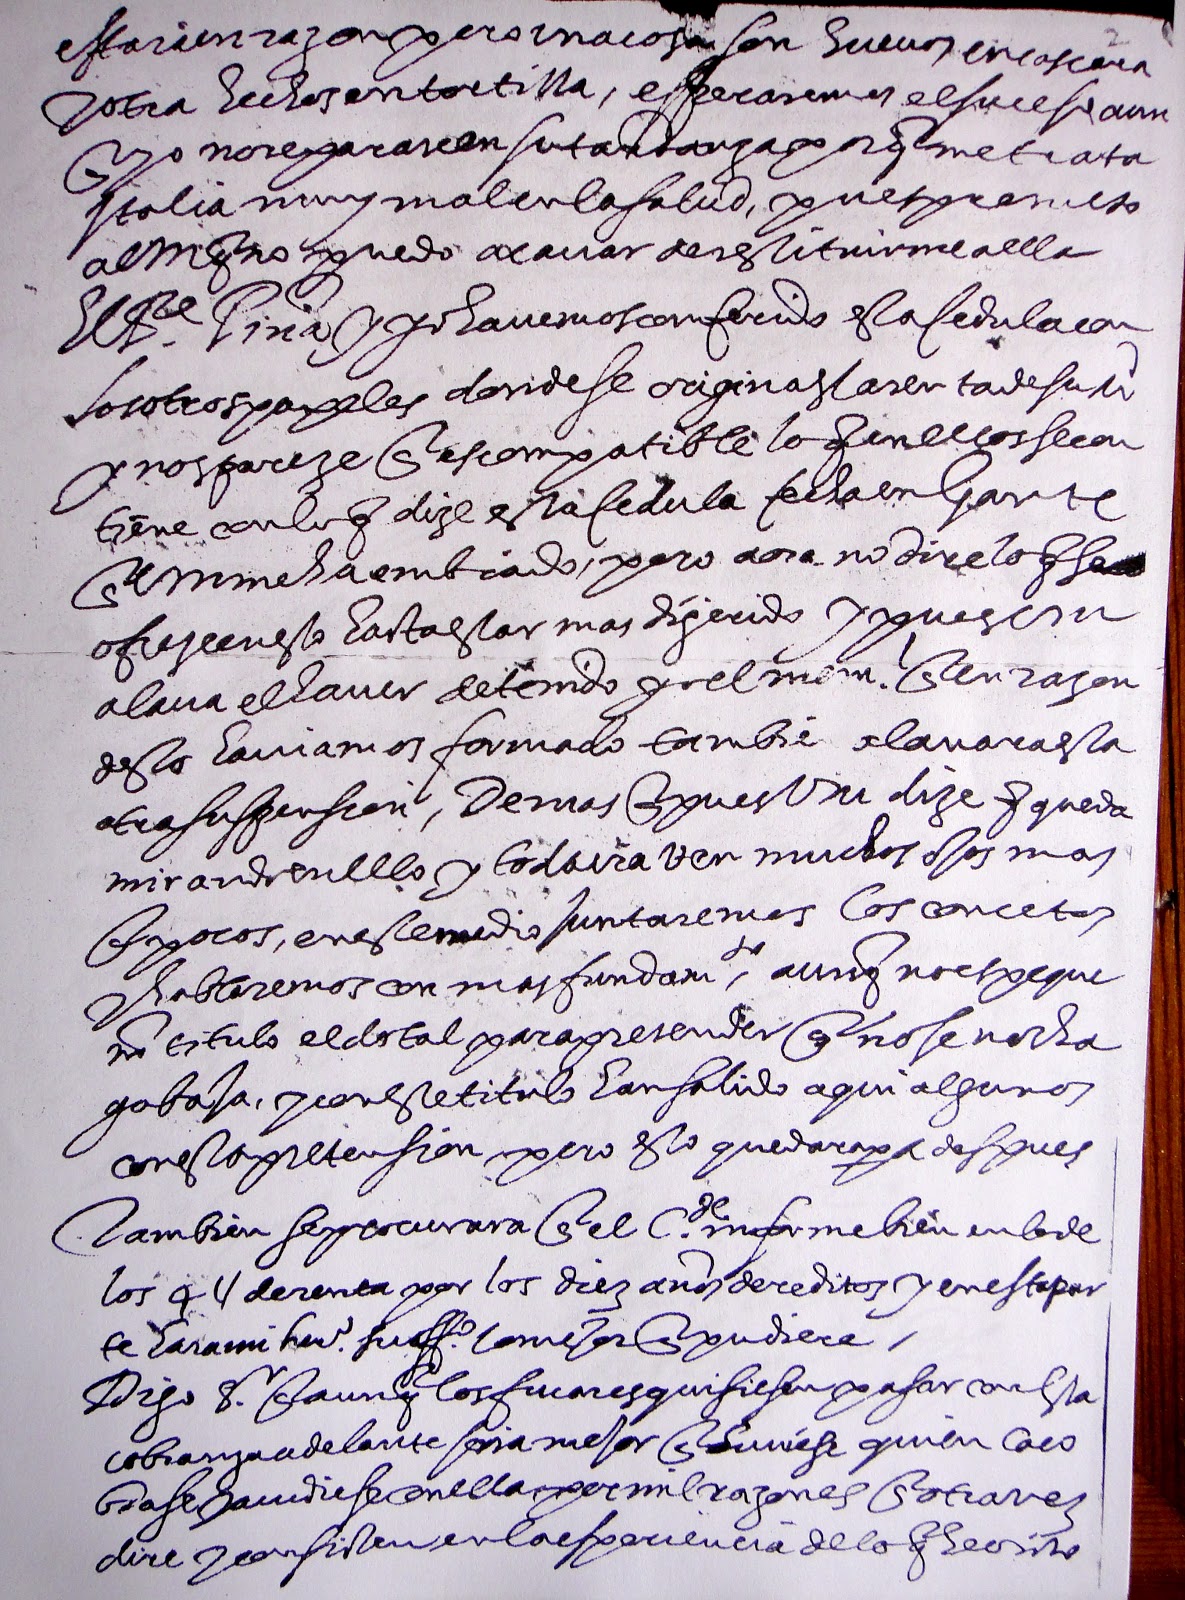 estaria en razon pero una cosa son huevos en cascara
y otra hechos en tortilla, esperaremos el suceso aun
q yo no reparase en su tardanza porq me trata
ytalia muy mal en la salud, pues
no puedo acavar de restituirme a ella
El Pe Piña y yo havemos conferido esta cedula con
los otros papeles donde se origina esta renta de su
y nos pareze q es compatible lo q en ellos se con
tiene con lo q dize esta cedula fecha en Gante
q Vm me ha embiado, pero aora no dire lo q se
ofreze en esto hasta estar mas dijerido y pues Vm
alava el haver detenido yo el mem. q en razon
desto haviamos formado tambie alavara esta
otra suspension, Demas q pues Vm dize q queda
mirando en ello y todavia ven muchos ojos mas
q pocos, en este medio juntaremos los concetos
y hablaremos con mas fundamto, aunq no es peque
no titulo el dotal para pretender q no se no ha
ga baja, y con este titulo han salido aqui algunos
con esta pretension pero esto quedara pa despues
Tambien se procurara q el C.del informe bien en lo de
los q 4 de renta por los diez años de reditos y en esta par
te hara mi herº. lo mejor q pudiere,
Digo Sr. q aunq los fucares quisiesen pasar con esta
cobranza adelante seria mejor q huviese quien la co
brase y acudiese con ella por mil razones q otra vez
dire y consisten en la esperiencia de lo q he visto